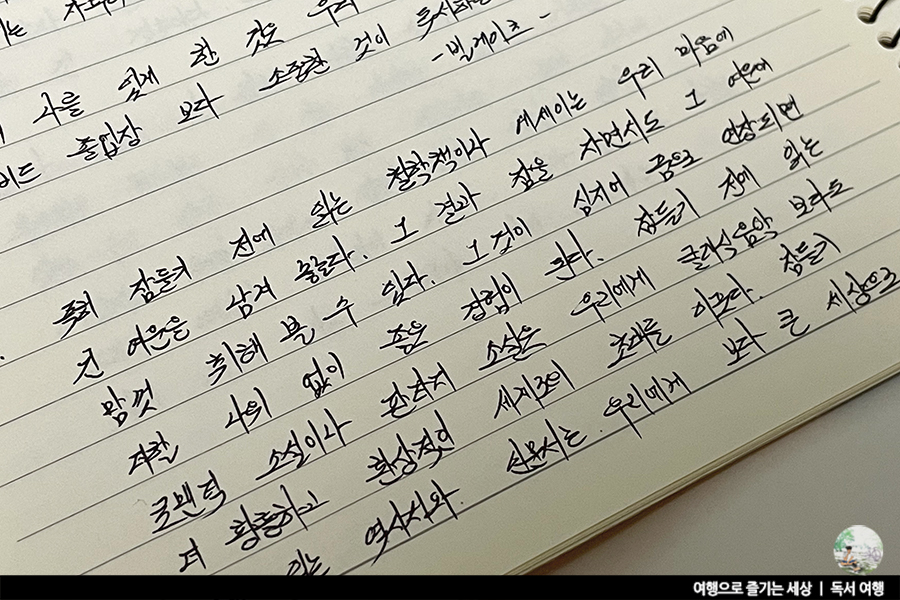 나를 있게 한 것은 우리
버드 졸업장 보다 소중한 것이 독서하는
-빌게이츠-
특히 잠들기 전에 읽는 철학책이나 에세이는 우리 마음에
긴 여운을 남겨 놓는다. 그 결과 잠을 자면서도 그 여운에
맘껏 취해 볼 수 있다. 그것이 심지어 꿈으로 연장되면
더할 나위 없이 좋은 경험이 된다. 잠들기 전에 읽는
로맨틱 소설이나 판타지 소설은 우리에게 클래식음악 보다도
더 황홀하고 환상적인 세계로의 초대를 이끈다. 잠들기
읽는 역사서와 인문서는 우리에게 보다 큰 세상으로
여행으로 즐기는 세상 | 독서 여행